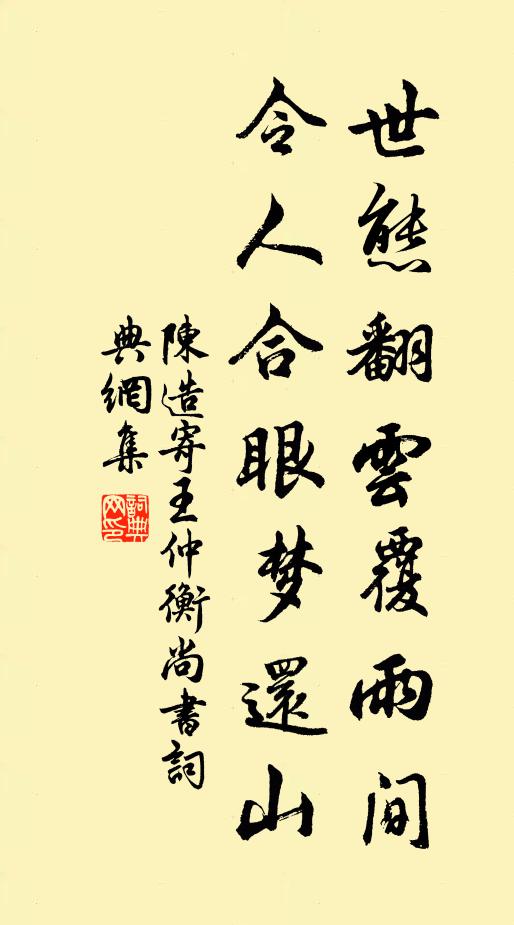 世態翻雲覆雨間
令人合眼梦還山
陳造寄王仲衡尚書詞
典網集
詞典
网印